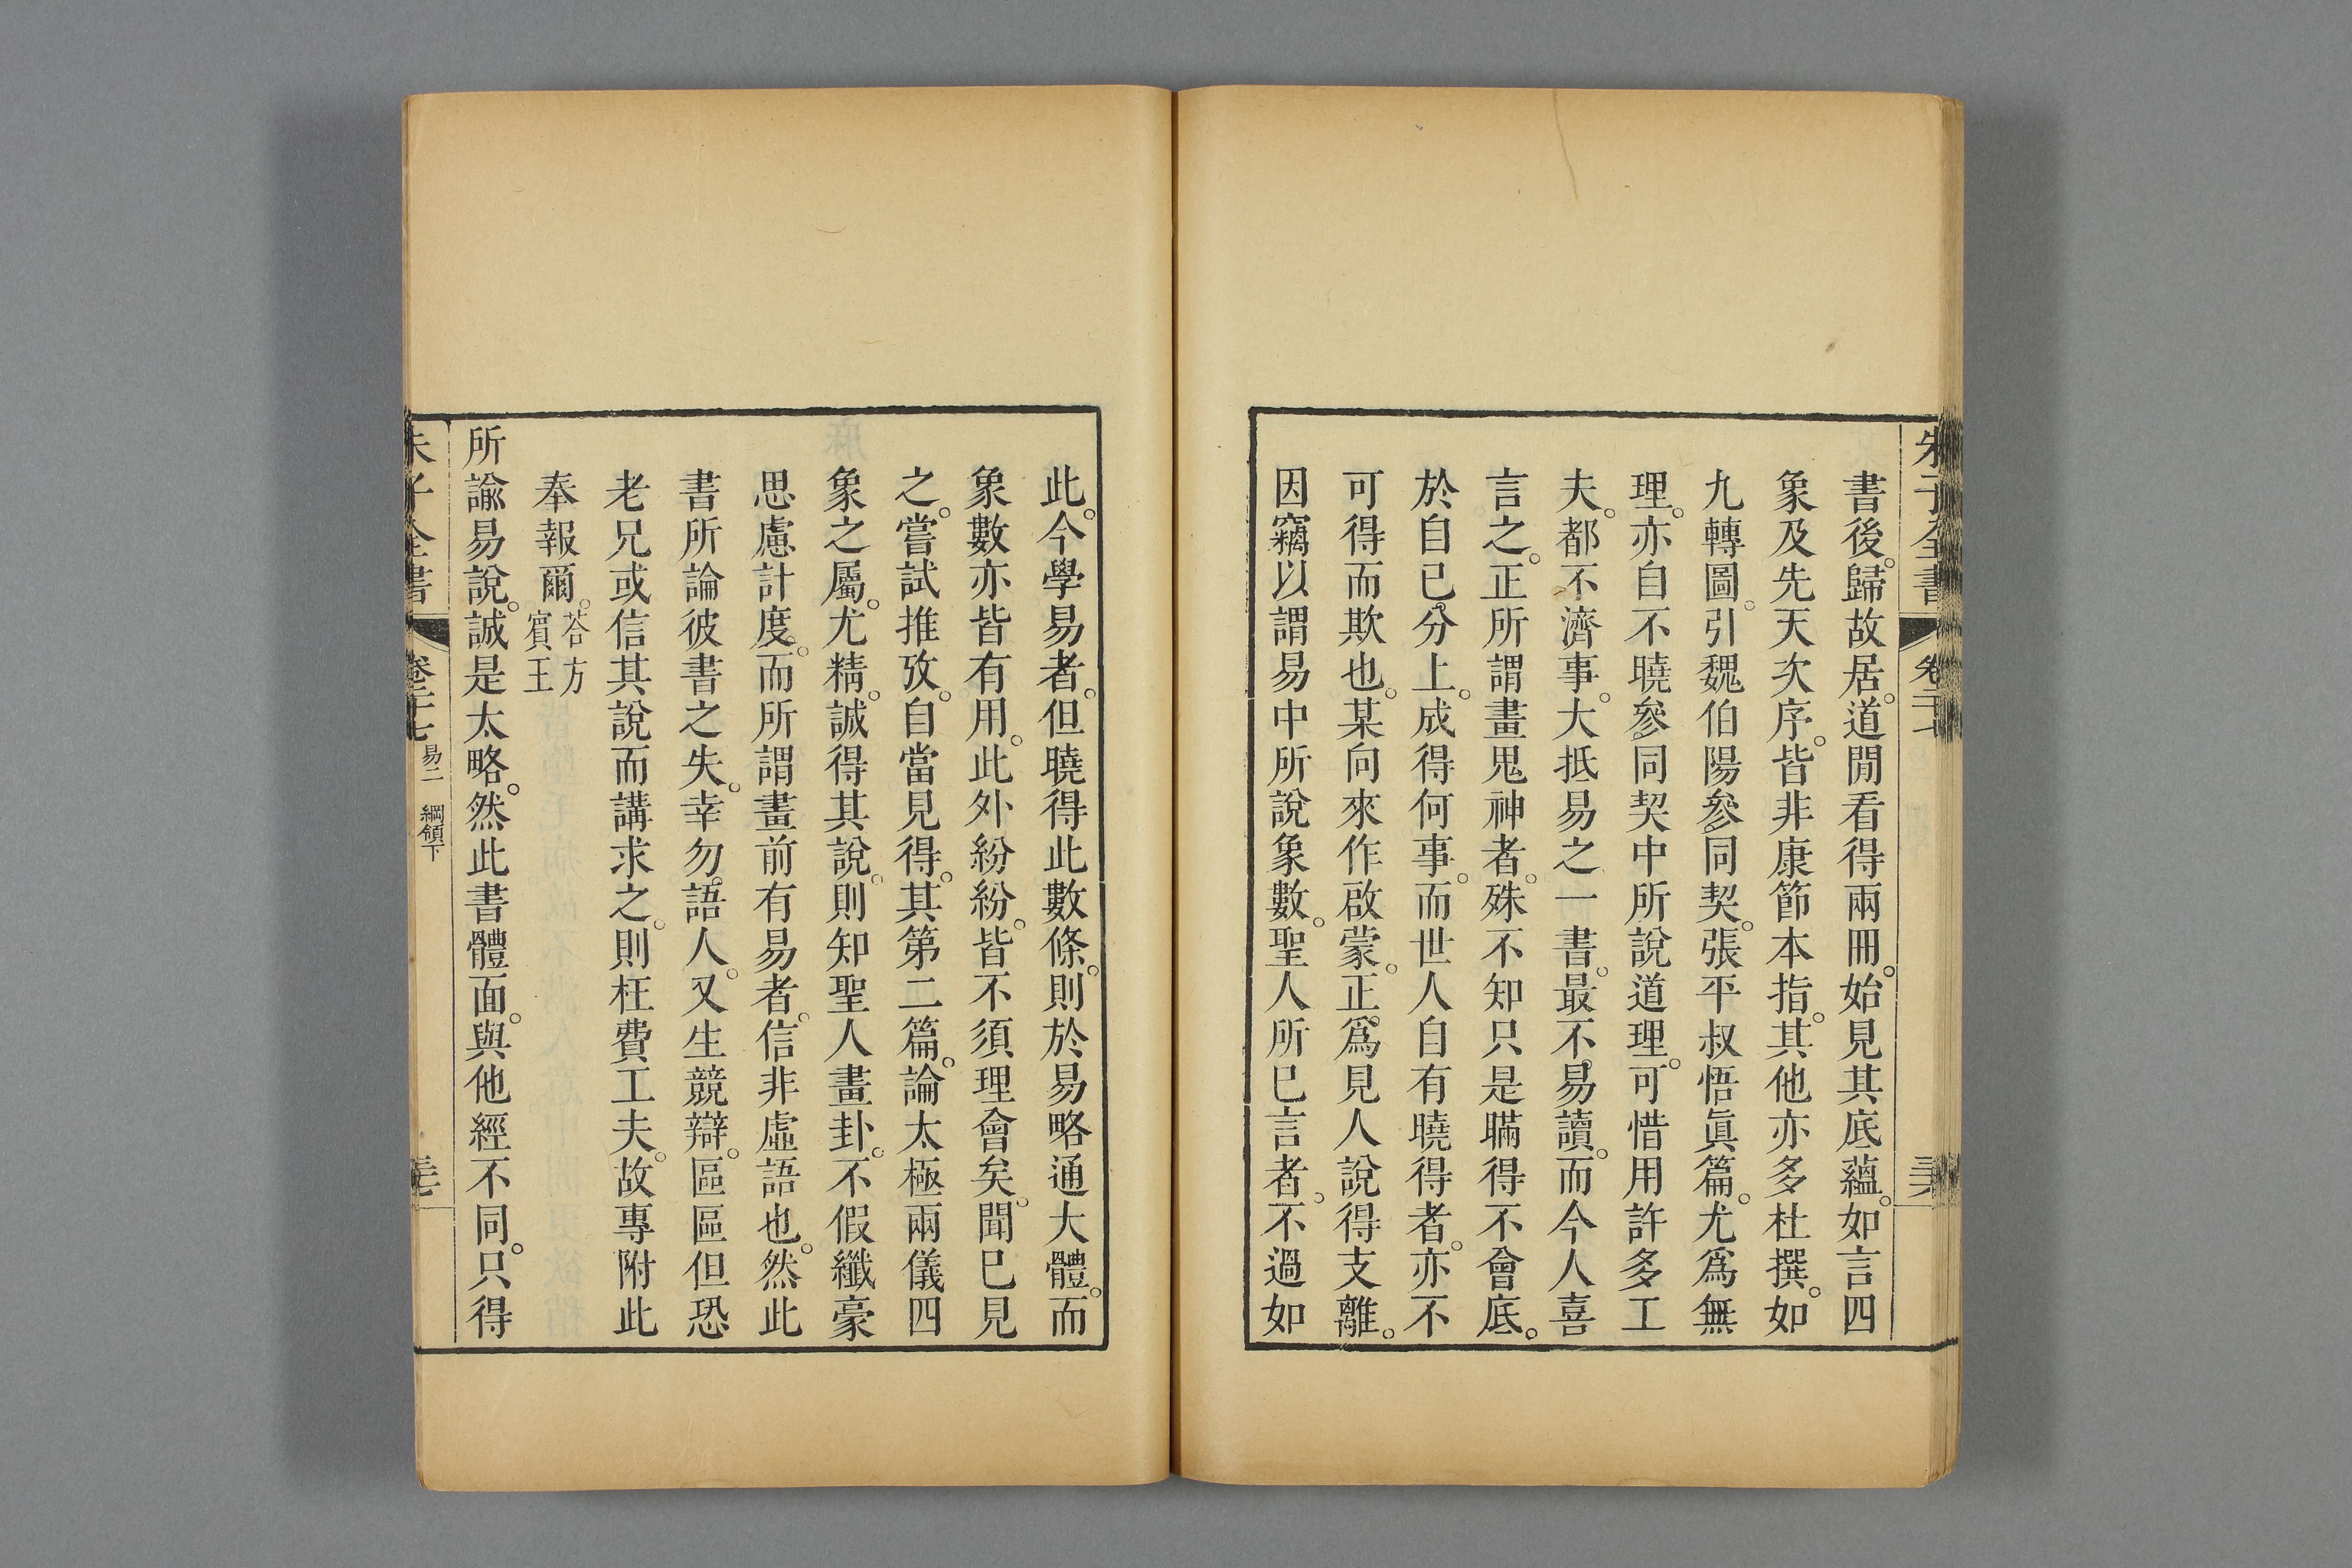 朱子全書 卷二十七 三六
書後。歸故居。道閒看得兩冊。始見其底蘊。如言四
象及先天次序。皆非康節本指。其他亦多杜撰。如
九轉圖。引魏伯陽參同契。張平叔悟眞篇。尤爲無
理。亦自不曉參同契中所說道理。可惜用許多工
夫。都不濟事。大抵易之一書。最不易讀。而今人喜
言之。正所謂畫鬼神者。殊不知只是瞞得不會底。
於自己分上。成得何事。而世人自有曉得者。亦不
可得而欺也。某向來作啟蒙。正爲見人說得支離。
因竊以謂易中所說象數。聖人所已言者。不過如
此。今學易者。但曉得此數條。則於易略通大體。而
象數亦皆有用。此外紛紛。皆不須理會矣。聞已見
之。嘗試推攷。自當見得。其第二篇。論太極兩儀四
象之屬。尤精。誠得其說。則知聖人畫卦。不假纖豪
思慮計度。而所謂畫前有易者。信非虛語也。然此
書所論彼書之失。幸勿語人。又生競辯。區區但恐
老兄或信其說而講求之。則枉費工夫。故專附此
奉報爾。荅方賓王
所諭易說。誠是太略。然此書體面。與他經不同。只得
朱子全書 卷二十七 易二 綱領下 三七